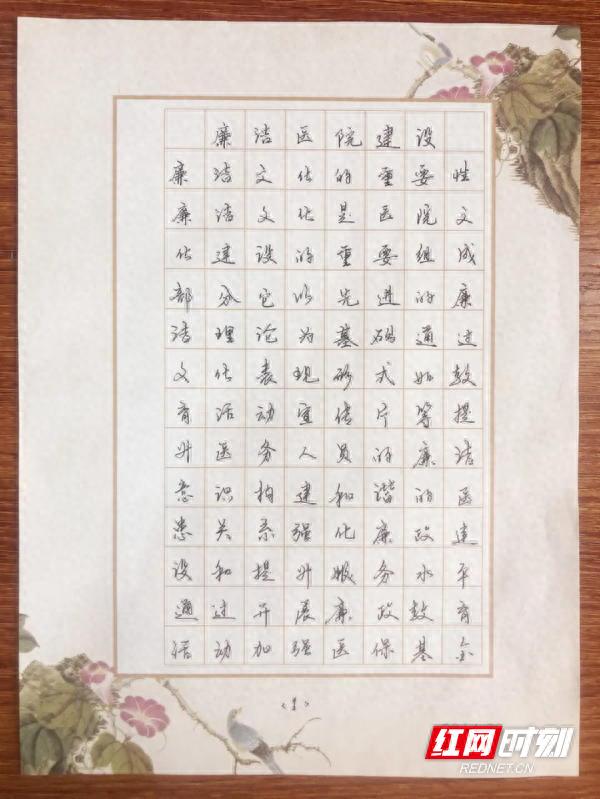 廉洁医院建设
廉洁文化的重要性
廉洁文化是医院文
化建设的重要组成
部分它以先进的廉
洁理论为基础通过
文化表现形式如教
育活动宣传片等提
升医务人员的廉洁
意识构建和谐的医
患关系强化廉政建
设和提升服务水平
通过开展廉政教育
活动加强医保基金
<1>
红网时刻
REDNET.CN